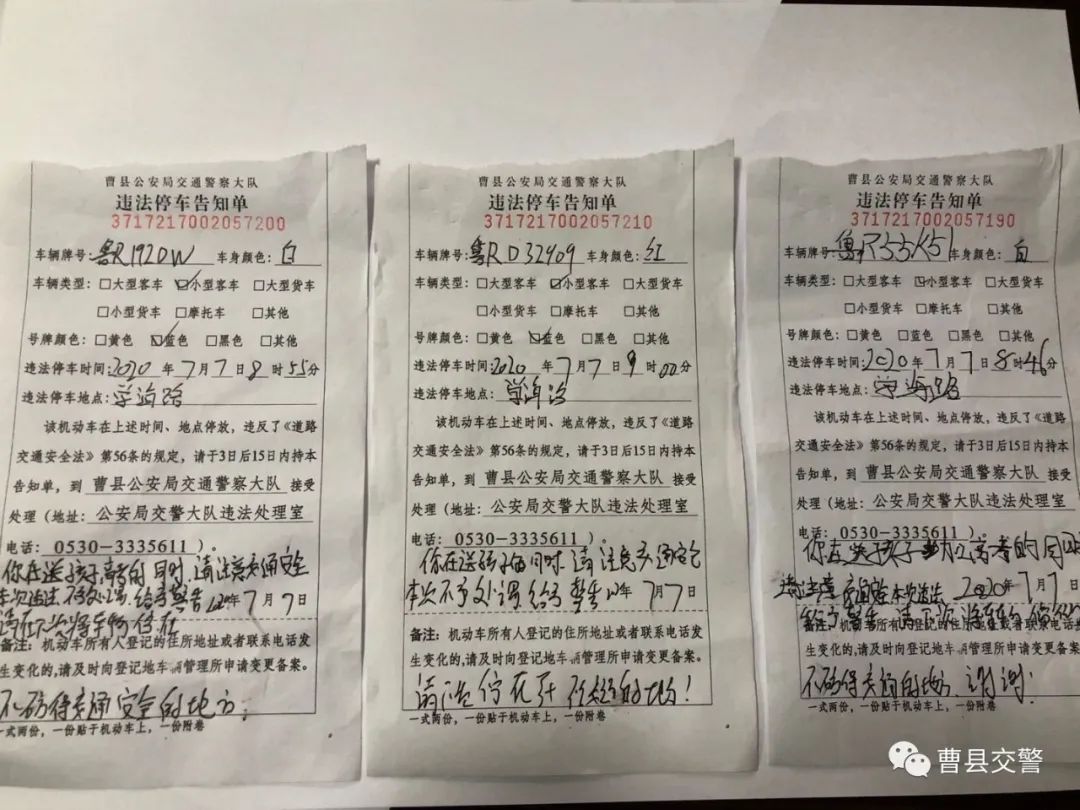 曹县公安局交通警察大队
违法停车告知单
3717217002057200
车辆牌号:鲁R192DW 车身颜色:白
车辆类型:□大型客车 ☑小型客车 □大型货车
□小型货车 □摩托车 □其他
号牌颜色:□黄色 ☑蓝色 □黑色 □其他
违法停车时间:2020年7月7日8时55分
违法停车地点:学海路
该机动车在上述时间、地点停放,违反了《道路
交通安全法》第56条的规定,请于3日后15日内持本
告知单,到 曹县公安局交通警察大队 接受
处理(地址: 公安局交警大队违法处理室
电话: 0530-3335611 )。
你在送孩子高考的同时,请注意交通安全
本次违法不予处理,给予警告 2020年7月7日
请在下次将车辆停在
备注:机动车所有人登记的住所地址或者联系电话发
生变化的,请及时向登记地车辆管理所申请变更备案。
不妨碍交通安全的地方;
一式两份,一份贴于机动车上,一份附卷
曹县公安局交通警察大队
违法停车告知单
3717217002057210
车辆牌号:鲁RD32409 车身颜色:红
车辆类型:□大型客车 ☑小型客车 □大型货车
□小型货车 □摩托车 □其他
号牌颜色:□黄色 ☑蓝色 □黑色 □其他
违法停车时间:2020年7月7日9时00分
违法停车地点:学海路
该机动车在上述时间、地点停放,违反了《道路
交通安全法》第56条的规定,请于3日后15日内持本
告知单,到 曹县公安局交通警察大队 接受
处理(地址: 公安局交警大队违法处理室
电话: 0530-3335611 )。
你在送孩子的同时,请注意交通安全
本次不予处理 给予警告 年7月7日
备注:机动车所有人登记的住所地址或者联系电话发
生变化的,请及时向登记地车辆管理所申请变更备案。
请停在 的地方!
一式两份,一份贴于机动车上,一份附卷
曹县公安局交通警察大队
违法停车告知单
3717217002057190
车辆牌号:鲁R 车身颜色:白
车辆类型:□大型客车 ☑小型客车 □大型货车
□小型货车 □摩托车 □其他
号牌颜色:□黄色 □蓝色 □黑色 □其他
违法停车时间:2020年7月7日8时46分
违法停车地点:学海路
该机动车在上述时间、地点停放,违反了《道路
交通安全法》第56条的规定,请于3日后15日内持本
告知单,到 曹县公安局交通警察大队 接受
处理(地址: 公安局交警大队违法处理室
电话: 0530-3335611 )。
你在送孩子 高考的同时
请注意交通安全本次违法 2020年7月7日
给予警告,请下次将车辆停
备注:机动车所有人登记的住所地址或者联系电话发
生变化的,请及时向登记地车辆管理所申请变更备案。
不妨碍交通的地方,谢谢!
一式两份,一份贴于机动车上,一份附卷
曹县交警